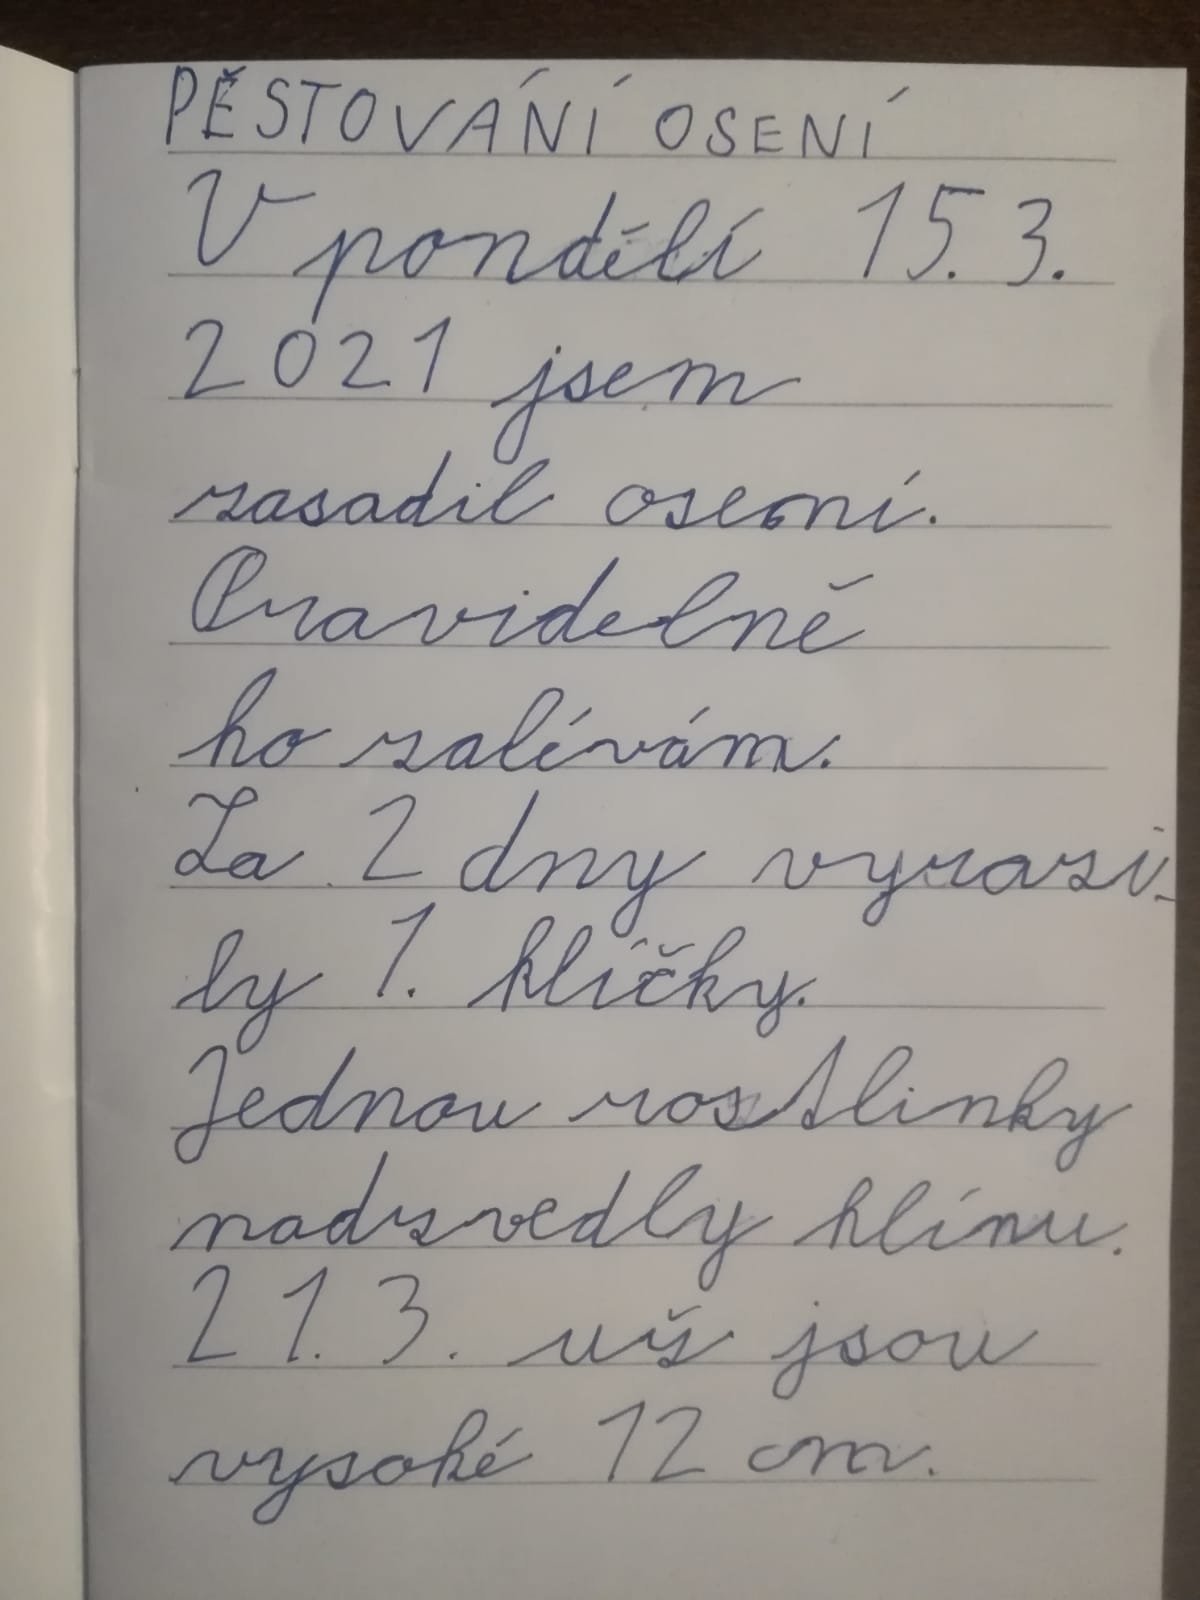 PĚSTOVÁNÍ OSENÍ
V pondělí 15. 3.
2021 jsem
zasadil osení.
Pravidelně
ho zalívám.
Za 2 dny vyrazi-
ly 1. klíčky.
Jednou rostlinky
nadzvedly hlínu.
21. 3. už jsou
vysoké 12 cm.